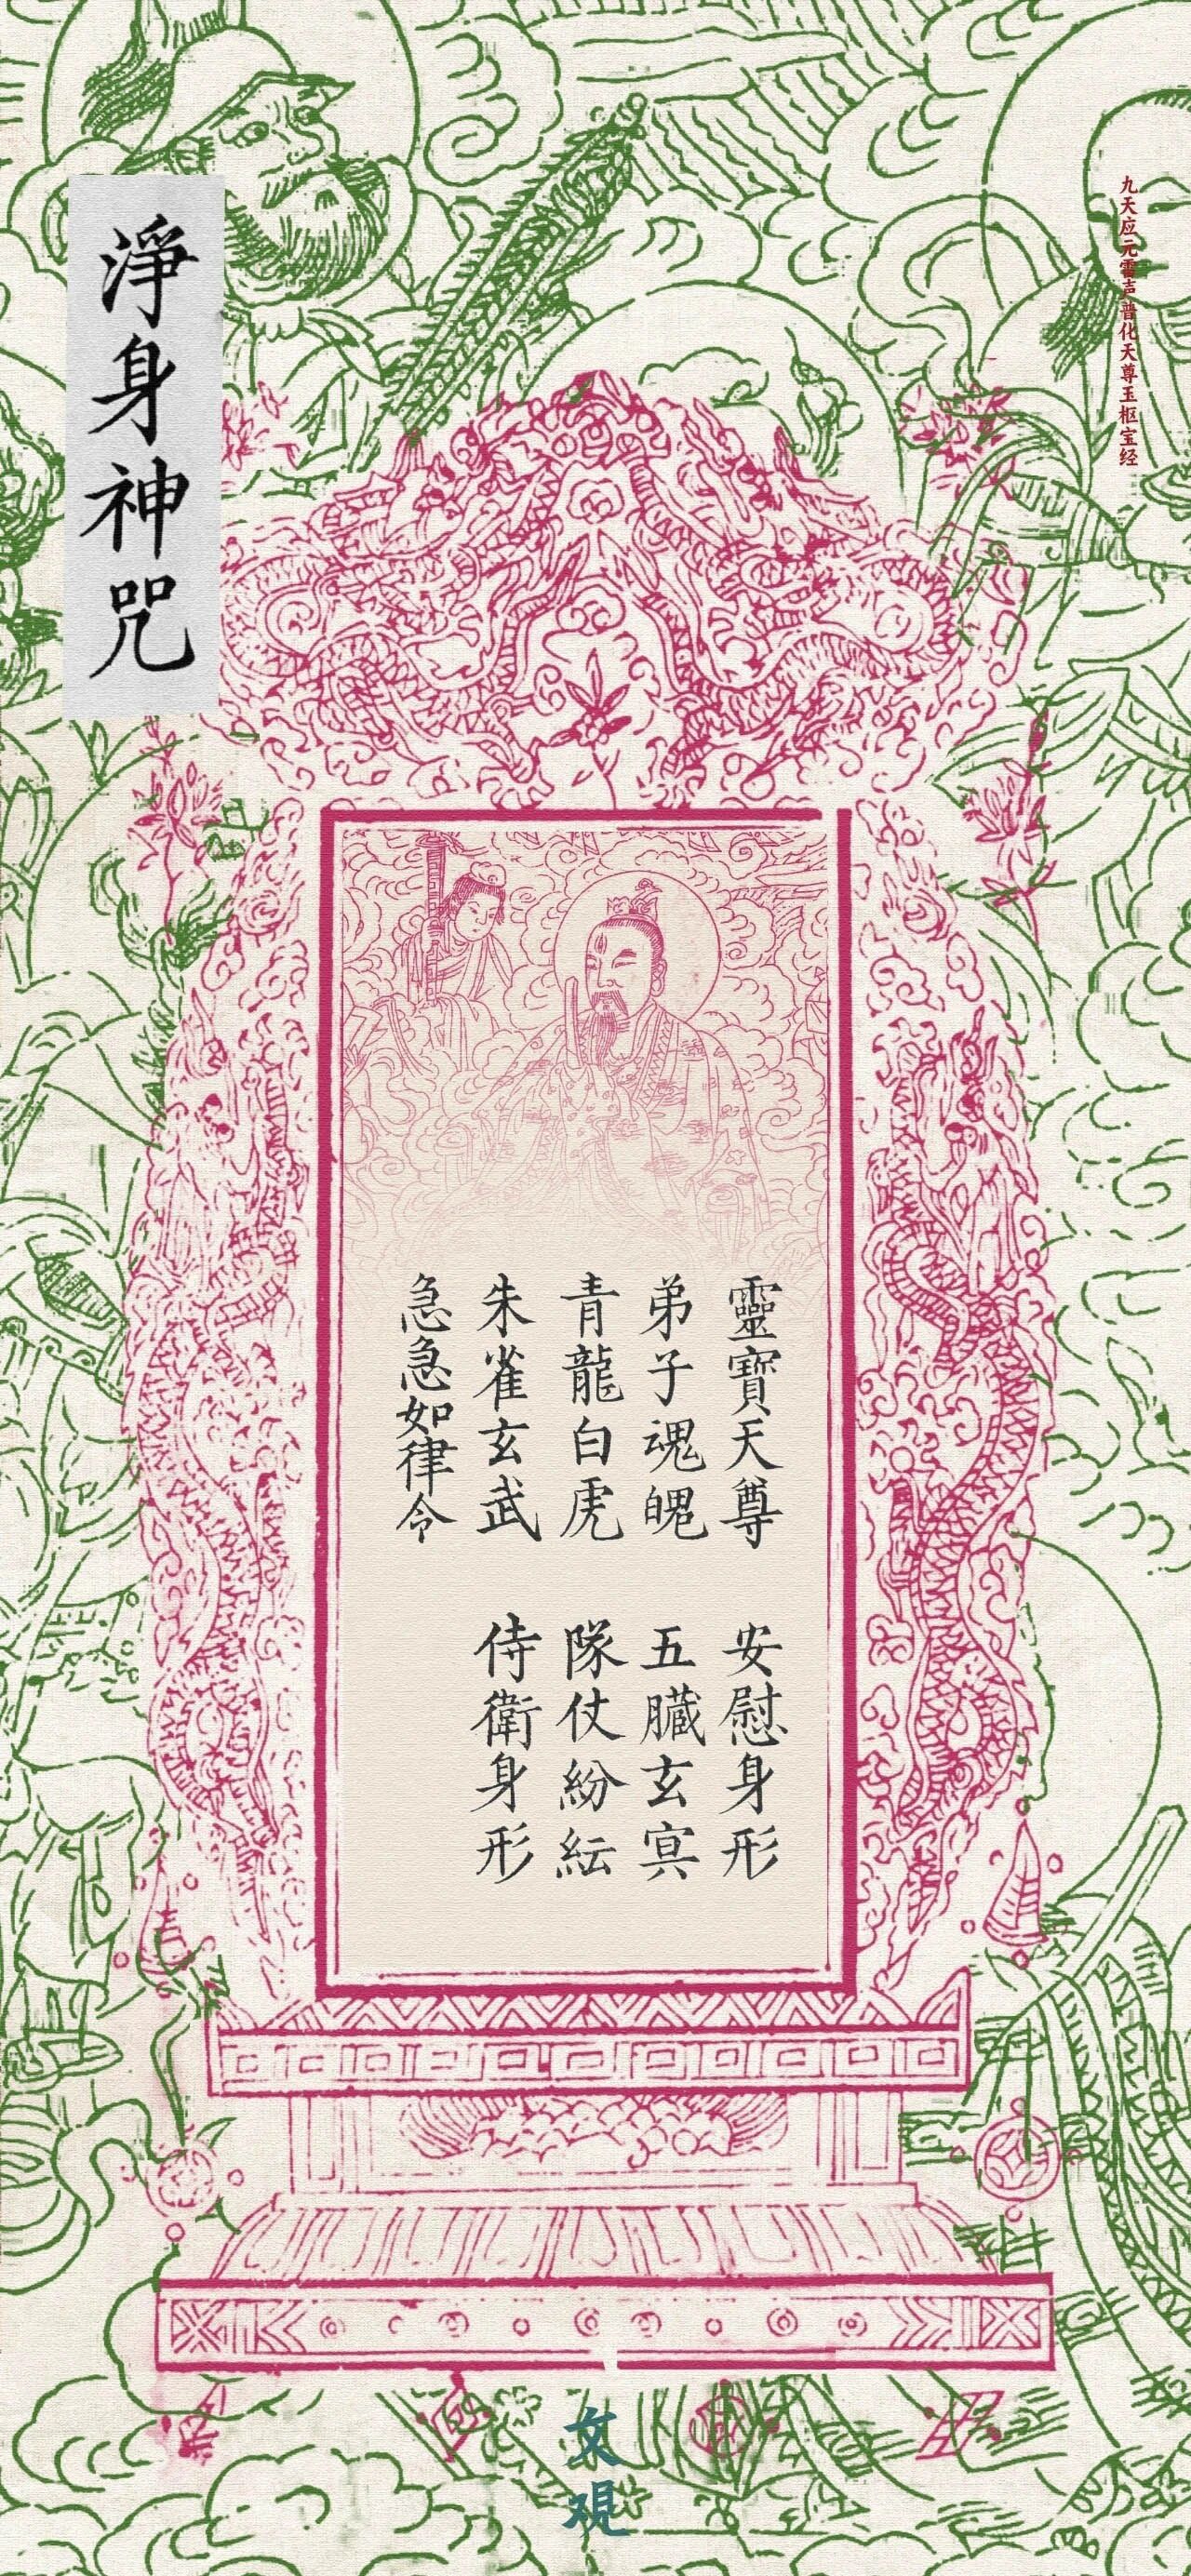 九天应元雷声普化天尊玉枢宝经
淨身神咒
靈寶天尊 安慰身形
弟子魂魄 五臟玄冥
青龍白虎 隊仗紛紜
朱雀玄武 侍衛身形
急急如律令
文視